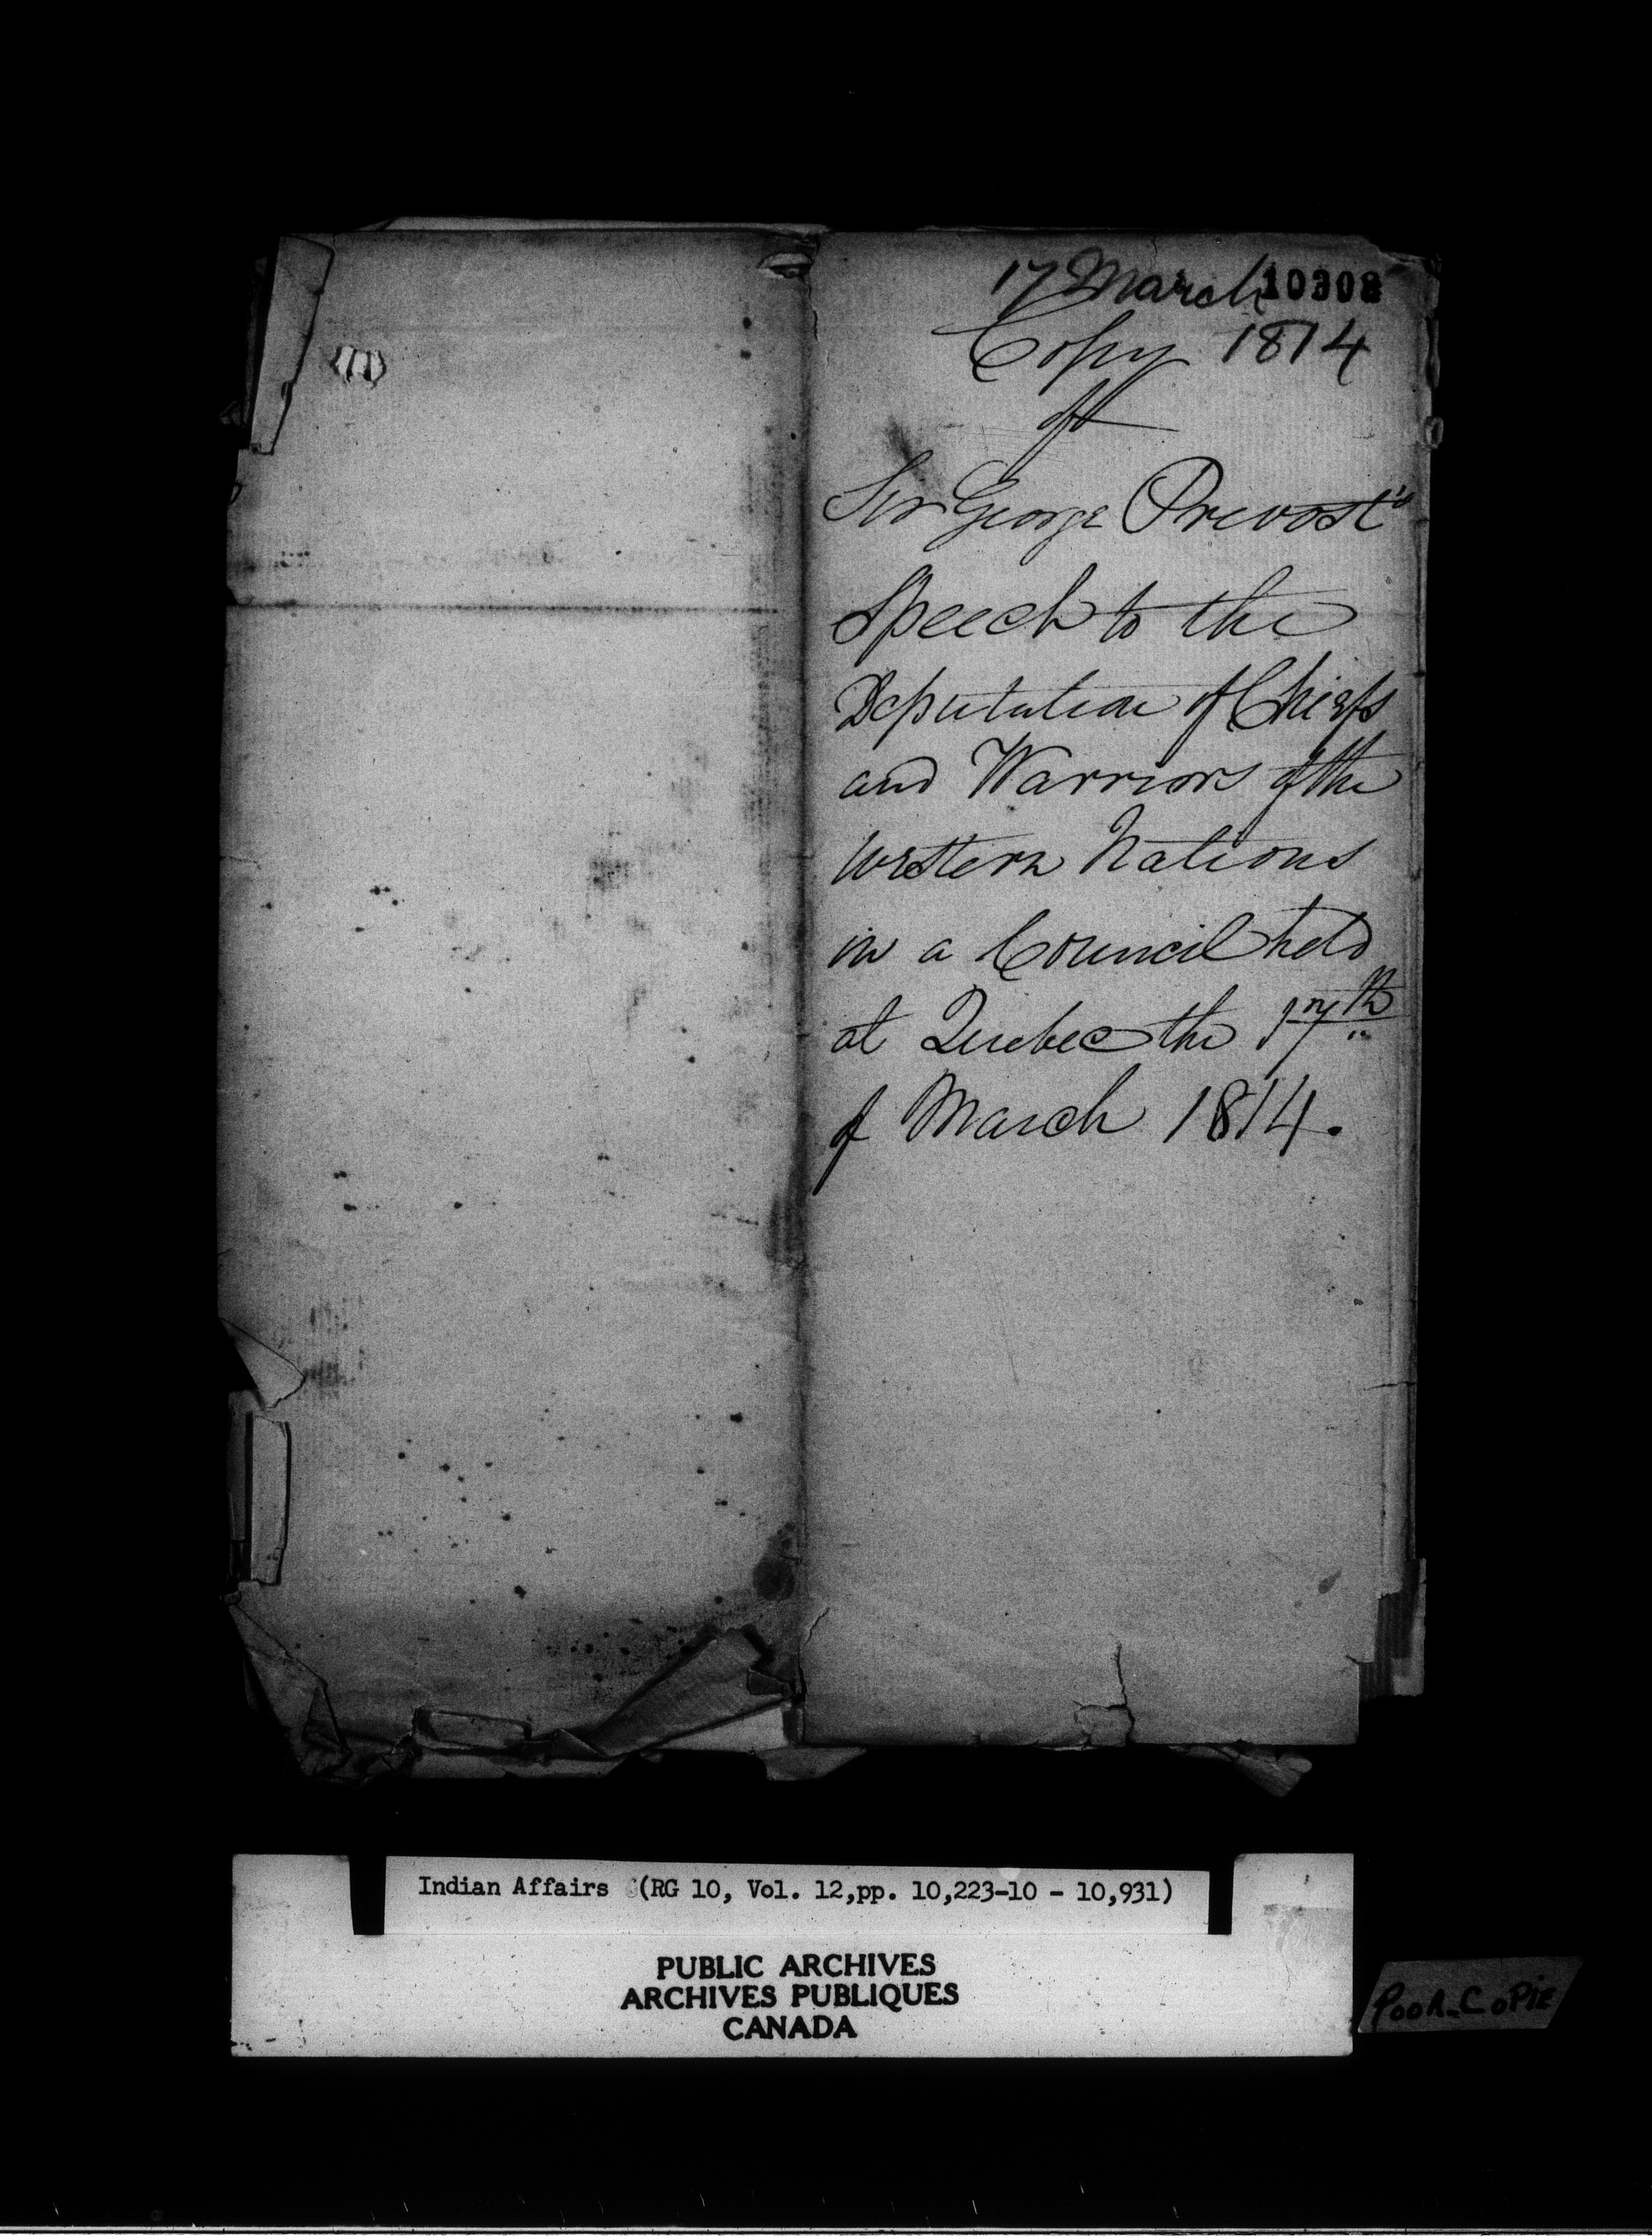 17 March 10308
Copy 1814
of
Sir George Prevost's
Speech to the
Deputation of Chiefs
and Warriors of the
Western Nations
in a Council held
at Quebec the 17th
of March 1814.
Indian Affairs (RG 10, Vol. 12, pp. 10,223-10 - 10,931)
PUBLIC ARCHIVES
ARCHIVES PUBLIQUES
CANADA
POOR COPIE